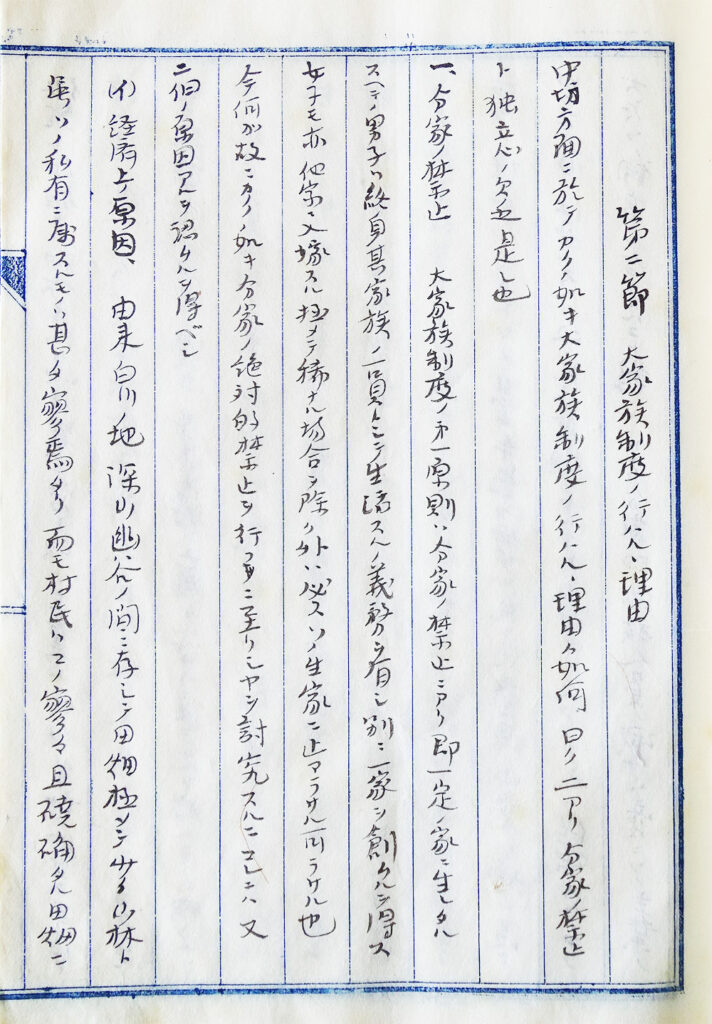 第二節　大家族制度ノ行ハルヽ理由
中切方面ニ於テカクノ如キ大家族制度ノ行ハルヽ理由ハ如何　曰ク二アリ　分家ノ禁止
ト独立心ノ欠乏是レ也
一、分家ノ禁止　大家族制度ノ第一原則ハ分家ノ禁止ニアリ即一定ノ家ニ生レタル
スベテノ男子ハ終身其家族ノ一員トシテ生活スルノ義務ヲ有シ別ニ一家ヲ創クルヲ得ス
女子モ亦他家ニ入嫁スル極メテ稀ナル場合ヲ除ク外ハ必スソノ生家ニ止マラサル可ラサル也
今何が故ニカクノ如キ分家ノ絶対的禁止ヲ行フニ至リシヤヲ討究スルニコレニハ又
二個ノ原因アルヲ認ムルヲ得ベシ
(イ)経済上ノ原因、由来白川ノ地深山幽谷ノ間ニ存シテ田畑極メテ少ク山林ト
ソノ私有ニ属スルモノハ甚タ寥焉タリ　而モ村民ハコノ寥々且磽确タル田畑ニ